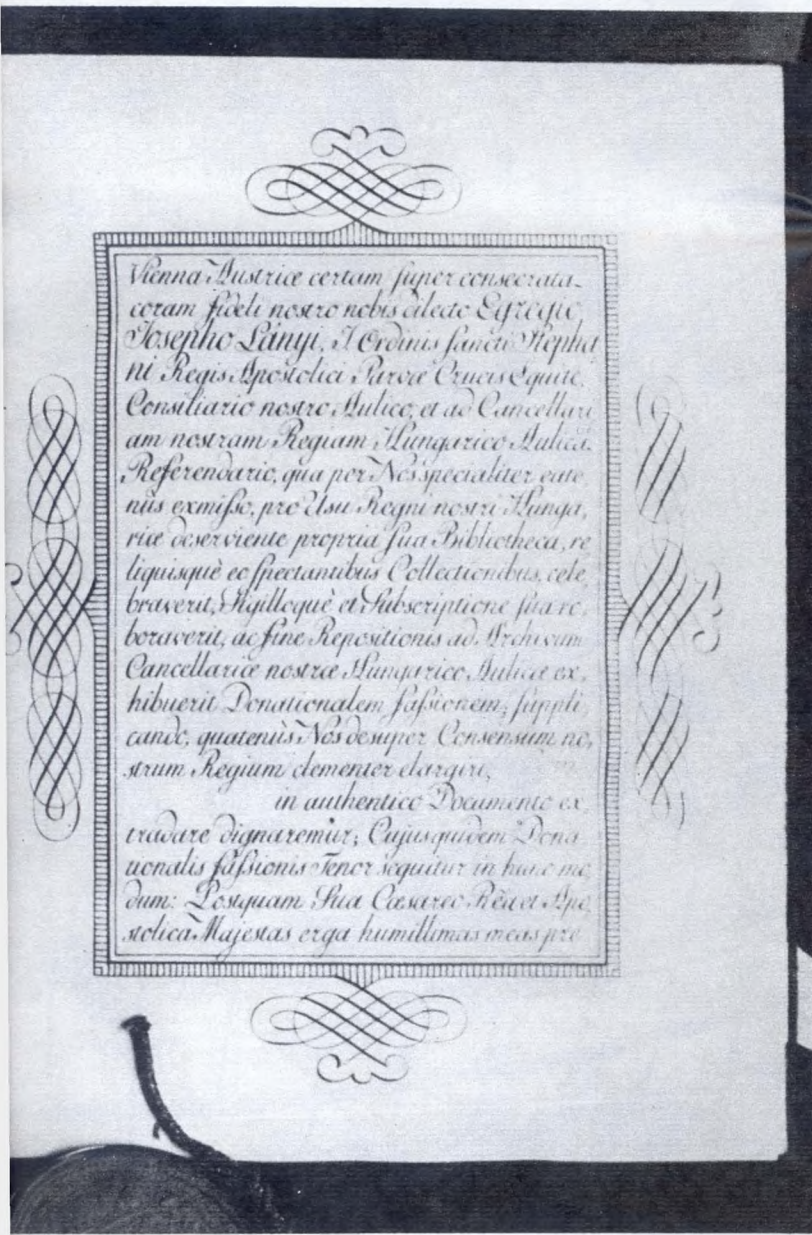 Vienna Austriæ certam super consecrata
coram fideli nostro nobis dilecto Egregio,
Josepho Lányi, I Ordinis sancti Stepha
ni Regis Apostolici Parvæ Crucis Equite,
Consiliario nostro Aulico, et ad Cancellari
am nostram Regiam Hungarico Aulica.
Referendario, qua per Nos specialiter eate
nùs exmisso, pro Usu Regni nostri Hunga,
riæ deserviente propria sua Bibliotheca, re
liquisquè eo spectantibus Collectionibus, cele,
braverit, Sigilloquè et Subscriptione sua ro,
boraverit, ac fine Repositionis ad Archivum
Cancellariæ nostræ Hungarico Aulicæ ex,
hibuerit Donationalem fassionem; suppli
cando, quatenùs Nos desuper Consensum no,
strum Regium clementer elargiri,
in authentico Documento ex
tradare dignaremur; Cujusquidem Dona
tionalis fassionis Tenor sequitur in hunc mo
dum: Postquam Sua Cæsareo Rĕa et Apo
stolica Majestas erga humillimas meas pre